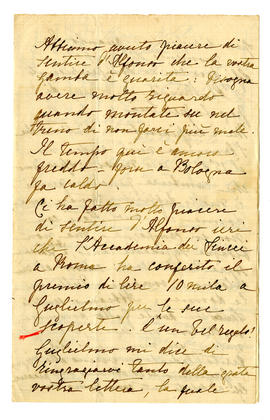 Abbiamo avuto piacere di
sentire d'Alfonso che la vostra
gamba è guarita: bisogna
avere molto riguardo
quando montate su nel
treno di non farvi più male.
Il tempo qui è ancora
freddo - forse a Bologna
fa caldo.
Ci ha fatto molto piacere
di sentire d'Alfonso ieri
che l'Accademia dei Lincei
a Roma ha conferito il
premio di lire 10 mila a
Guglielmo per le sue
scoperte. È un bel regalo!
Guglielmo mi dice di
ringraziarvi tanto della
vostra lettera, la quale